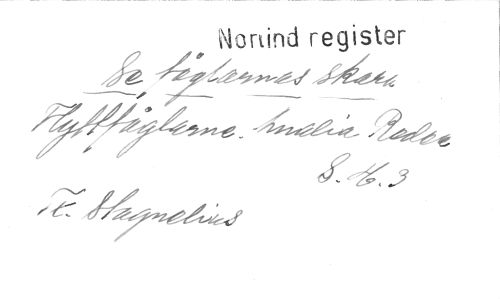 Norlind register
Se foglarnas skara
Flyttfoglarne. Amalia Redec
S. H. 3
T. Stagnelius